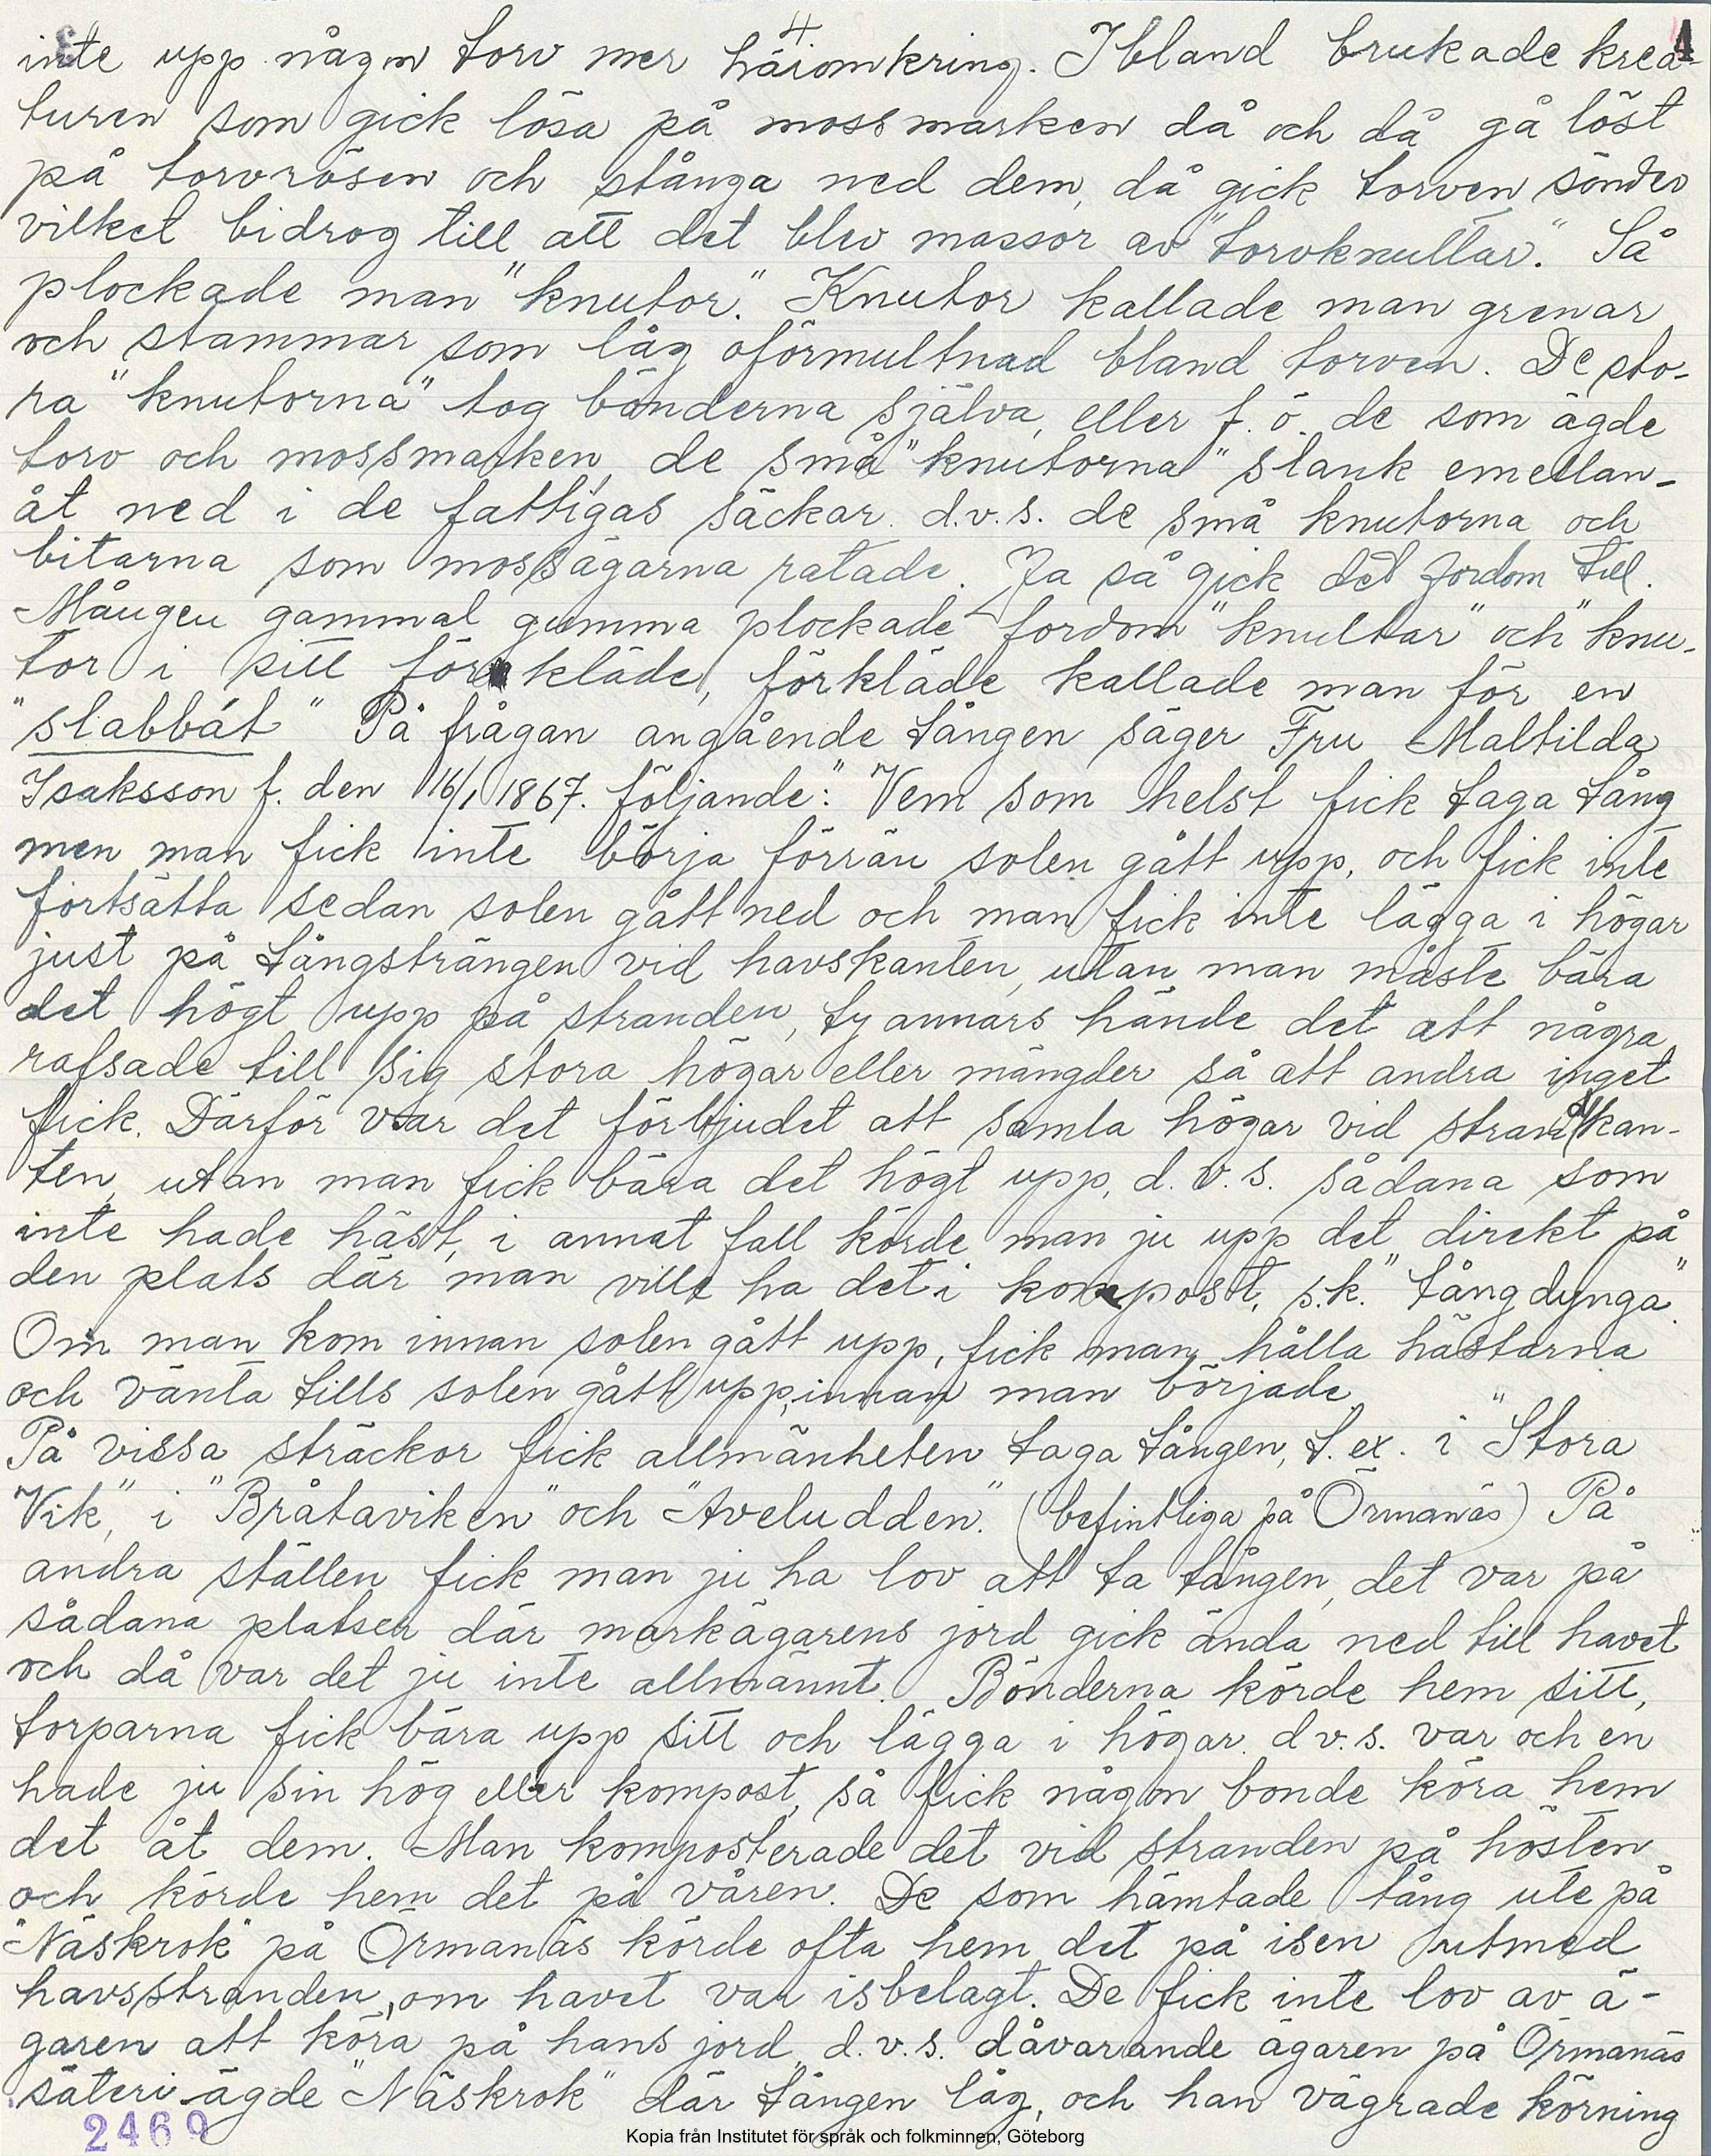 4
inte upp någon torv mer häromkring. Ibland brukade krea-
turen som gick lösa på mossmarken då och då gå löst
på torvrösen och stånga ned dem, då gick torven sönder
vilket bidrog till att det blev massor av "torvknultar." Så
plockade man "knutor." Knutor kallade man grenar
och stammar som låg oförmultnad bland torven. De sto-
ra "knutorna" tog bönderna själva, eller f. ö. de som ägde
torv och mossmarken, de små "knutorna" slank emellan-
åt ned i de fattigas säckar. d.v.s. de små knutorna och
bitarna som mossägarna ratade. Ja så gick det fordom till.
Mången gammal gumma plockade fordom "knultar" och "knu-
tor i sitt förkläde, förkläde kallade man för en
"slabbát" På frågan angående tången säger Fru Maltilda
Isaksson f. den 16/1 1867. följande: "Vem som helst fick taga tång
men man fick inte börja förrän solen gått upp, och fick inte
fortsätta sedan solen gått ned och man fick inte lägga i högar
just på tångsträngen vid havskanten, utan man måste bära
det högt upp på stranden, ty annars hände det att några
rafsade till sig stora högar eller mängder så att andra inget
fick. Därför var det förbjudet att samla högar vid strandkan-
ten, utan man fick bära det högt upp, d.v.s. sådana som
inte hade häst, i annat fall körde man ju upp det direkt på
den plats där man ville ha det i kompost, s.k. "tångdynga."
Om man kom innan solen gått upp, fick man hålla hästarna
och vänta tills solen gått upp, innan man började.
På vissa sträckor fick allmänheten taga tången, t. ex. i "Stora
Vik", i "Bråtaviken" och "Aveludden." (befintliga på Örmanäs) På
andra ställen fick man ju ha lov att ta tången, det var på
sådana platser där markägarens jord gick ända ned till havet
och då var det ju inte allmännt. Bönderna körde hem sitt,
torparna fick bära upp sitt och lägga i högar. d.v.s. var och en
hade ju sin hög eller kompost, så fick någon bonde köra hem
det åt dem. Man komposterade det vid stranden på hösten
och körde hem det på våren. De som hämtade tång ute på
"Näskrok" på Örmanäs körde ofta hem det på isen utmed
havsstranden, om havet var isbelagt. De fick inte lov av ä-
garen att köra på hans jord, d.v.s. dåvarande ägaren på Örmanäs
säteri ägde "Näskrok" där tången låg, och han vägrade körning
2469
Kopia från Institutet för språk och folkminnen, Göteborg